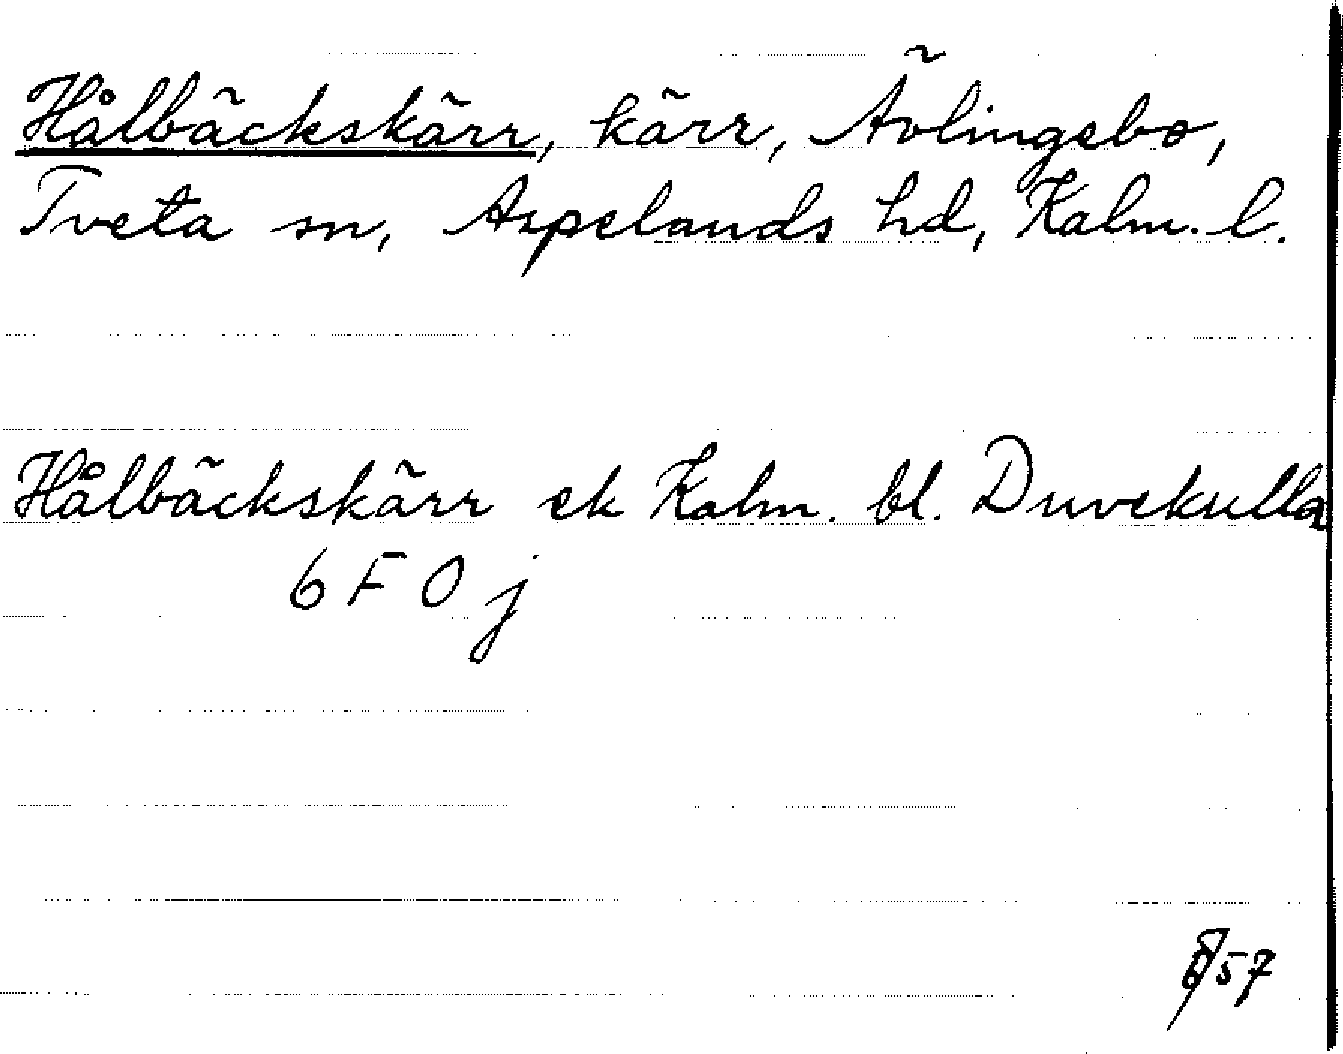 Hålbäckskärr, kärr, Ävlingebo,
Tveta sn, Aspelands hd, Kalm. l.
Hålbäckskärr ek Kalm. bl. Duvekulla
6 F 0 j
57